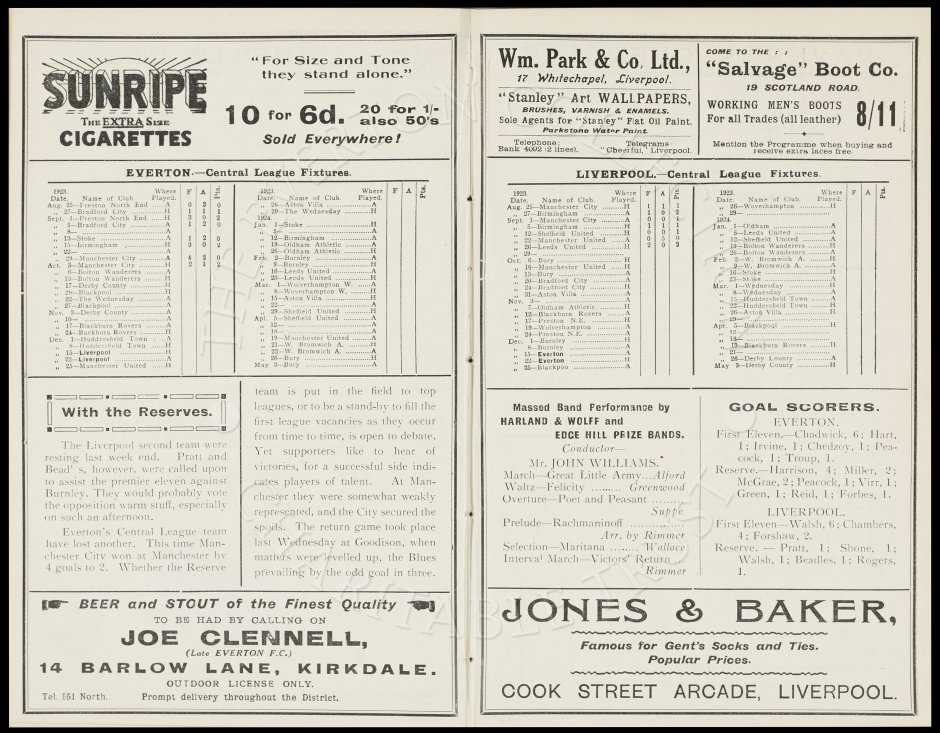 SUNRIPE
THE EXTRA SIZE
CIGARETTES
"For Size and Tone
they stand alone."
10 for 6d. 20 for 1/-
also 50's
Sold Everywhere!
EVERTON.—Central League Fixtures.
1923. Where F A Pts.
Date. Name of Club. Played.
Aug. 25—Preston North End ....A 0 3 0
„ 27—Bradford City ............H 1 1 1
Sept. 1—Preston North End ....H 3 0 2
„ 5—Bradford City ............A 1 2 0
„ 8—
„ 13—Stoke ......................A 1 2 0
„ 15—Birmingham ..............H 3 0 2
„ 22— A
„ 29—Manchester City ..........A 4 2 0
Oct. 3—Manchester City ..........H 2 1 2
„ 6—Bolton Wanderers ........A
„ 13—Bolton Wanderers ........H
„ 17—Derby County ..............H
„ 20—Blackpool ..................H
„ 22—The Wednesday ..........A
„ 27—Blackpool ..................A
Nov. 3—Derby County ..............A
„ 10—
„ 17—Blackburn Rovers ........A
„ 24—Blackburn Rovers ........H
Dec. 1—Huddersfield Town ......A
„ 8—Huddersfield Town ......H
„ 15—Liverpool ..................H
„ 22—Liverpool ..................A
„ 25—Manchester United ......H
1923. Where F A Pts.
Date. Name of Club. Played.
„ 26—Aston Villa ................A
„ 29—The Wednesday ..........H
1924.
Jan. 1—Stoke ......................H
„ 5—
„ 12—Birmingham ..............A
„ 19—Oldham Athletic ..........A
„ 26—Oldham Athletic ..........H
Feb. 2—Burnley ....................A
„ 9—Burnley ....................H
„ 16—Leeds United ..............H
„ 23—Leeds United ..............A
Mar. 1—Wolverhampton W. ......A
„ 8—Wolverhampton W. ......H
„ 15—Aston Villa ................H
„ 22—
„ 29—Sheffield United ..........H
Apl. 5—Sheffield United ..........A
„ 12—
„ 18—
„ 19—Manchester United ......A
„ 21—W. Bromwich A. ..........H
„ 22—W. Bromwich A. ..........A
„ 26—Bury ........................H
May 3—Bury ........................A
With the Reserves.
The Liverpool second team were
resting last week end. Pratt and
Bead's, however, were called upon
to assist the premier eleven against
Burnley. They would probably vote
the opposition warm stuff, especially
on such an afternoon.
Everton's Central League team
have lost another. This time Man-
chester City won at Manchester by
4 goals to 2. Whether the Reserve
team is put in the field to top
leagues, or to be a stand-by to fill the
first league vacancies as they occur
from time to time, is open to debate.
Yet supporters like to hear of
victories, for a successful side indi-
cates players of talent. At Man-
chester they were somewhat weakly
represented, and the City secured the
spoils. The return game took place
last Wednesday at Goodison, when
matters were levelled up, the Blues
prevailing by the odd goal in three.
BEER and STOUT of the Finest Quality
TO BE HAD BY CALLING ON
JOE CLENNELL,
(Late EVERTON F.C.)
14 BARLOW LANE, KIRKDALE.
OUTDOOR LICENSE ONLY.
Tel. 551 North. Prompt delivery throughout the District.
Wm. Park & Co. Ltd.,
17 Whitechapel, Liverpool.
"Stanley" Art WALLPAPERS,
BRUSHES, VARNISH & ENAMELS.
Sole Agents for "Stanley" Flat Oil Paint.
Parkstone Water Paint.
Telephone: Telegrams
Bank 4092 (2 lines). "Cheerful," Liverpool.
COME TO THE : :
"Salvage" Boot Co.
19 SCOTLAND ROAD.
WORKING MEN'S BOOTS
For all Trades (all leather) 8/11
Mention the Programme when buying and
receive extra laces free.
LIVERPOOL.—Central League Fixtures.
1923. Where F A Pts.
Date. Name of Club. Played.
Aug. 25—Manchester City ..........H 1 1 1
„ 27—Birmingham ..............H 1 0 2
Sept. 1—Manchester City ..........A 0 0 1
„ 5—Birmingham ..............A 1 1 1
„ 12—Sheffield United ..........H 0 0 1
„ 22—Manchester United ......A 0 5 0
„ 26—Leeds United ..............H 2 0 2
„ 29—
Oct. 6—Bury ........................H
„ 10—Manchester United ......H
„ 13—Bury ........................A
„ 20—Bradford City ............A
„ 24—Bradford City ............H
„ 31—Aston Villa ................A
Nov. 3—
„ 7—Oldham Athletic ..........A
„ 12—Blackburn Rovers ........A
„ 17—Preston N.E. ..............H
„ 19—Wolverhampton ..........A
„ 24—Preston N.E. ..............A
Dec. 1—Burnley ....................H
„ 8—Burnley ....................A
„ 15—Everton ....................A
„ 22—Everton ....................H
„ 25—Blackpool ..................A
1923. Where F A Pts.
Date. Name of Club. Played.
„ 26—Wolverhampton ..........H
„ 29—
1924.
Jan. 1—Oldham ....................H
„ 5—Leeds United ..............A
„ 12—Sheffield United ..........A
„ 19—Bolton Wanderers ........H
„ 26—Bolton Wanderers ........A
Feb. 2—W. Bromwich A. ..........H
„ 9—W. Bromwich A. ..........A
„ 16—Stoke ......................H
„ 23—Stoke ......................A
Mar. 1—Wednesday ................H
„ 8—Wednesday ................A
„ 15—Huddersfield Town ......H
„ 22—Huddersfield Town ......A
„ 26—Aston Villa ................H
„ 29—
Apr. 5—Blackpool ..................H
„ 12—
„ 18—
„ 19—Blackburn Rovers ........H
„ 21—
„ 26—Derby County ..............A
May 3—Derby County ..............H
Massed Band Performance by
HARLAND & WOLFF and
EDGE HILL PRIZE BANDS.
Conductor—
Mr. JOHN WILLIAMS.
March—Great Little Army...Alford
Waltz—Felicity ........ Greenwood
Overture—Poet and Peasant ........
Suppé
Prelude—Rachmaninoff ..............
Arr. by Rimmer
Selection—Maritana ........ Wallace
Interval March—Victors' Return ...
Rimmer
GOAL SCORERS.
EVERTON.
First Eleven.—Chadwick, 6; Hart,
1; Irvine, 1; Chedzoy, 1; Pea-
cock, 1; Troup, 1.
Reserve.—Harrison, 4; Miller, 2;
McGrae, 2; Peacock, 1; Virr, 1;
Green, 1; Reid, 1; Forbes, 1.
LIVERPOOL.
First Eleven—Walsh, 6; Chambers,
4; Forshaw, 2.
Reserve. — Pratt, 1; Shone, 1;
Walsh, 1; Beadles, 1; Rogers,
1.
JONES & BAKER,
Famous for Gent's Socks and Ties.
Popular Prices.
COOK STREET ARCADE, LIVERPOOL.